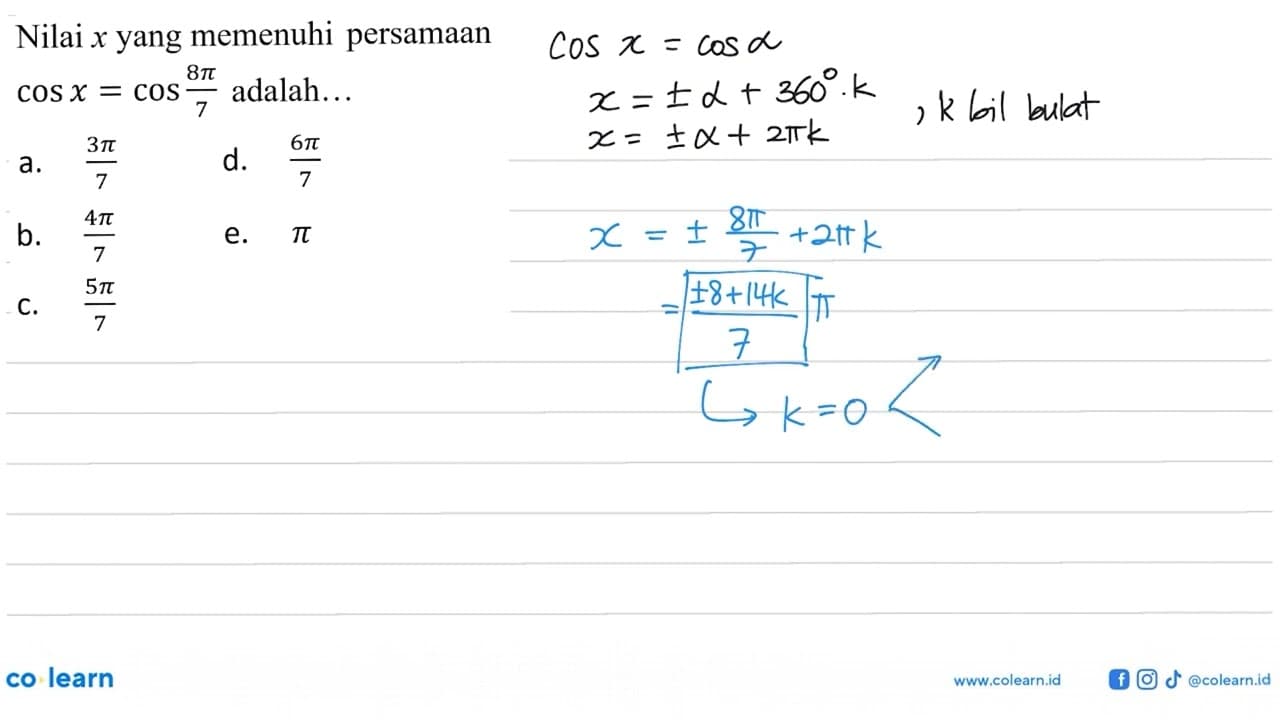 Nilai x yang memenuhi persamaan
cos x = cos 8π/7 adalah...
a. 3π/7 d. 6π/7
b. 4π/7 e. π
c. 5π/7
cos x = cos α
x = ± α + 360°. k
x = ± α + 2πk , k bil bulat
x = ± 8π/7 + 2πk
= ±8+14k/7 π
k = 0
co learn
www.colearn.id
@colearn.id